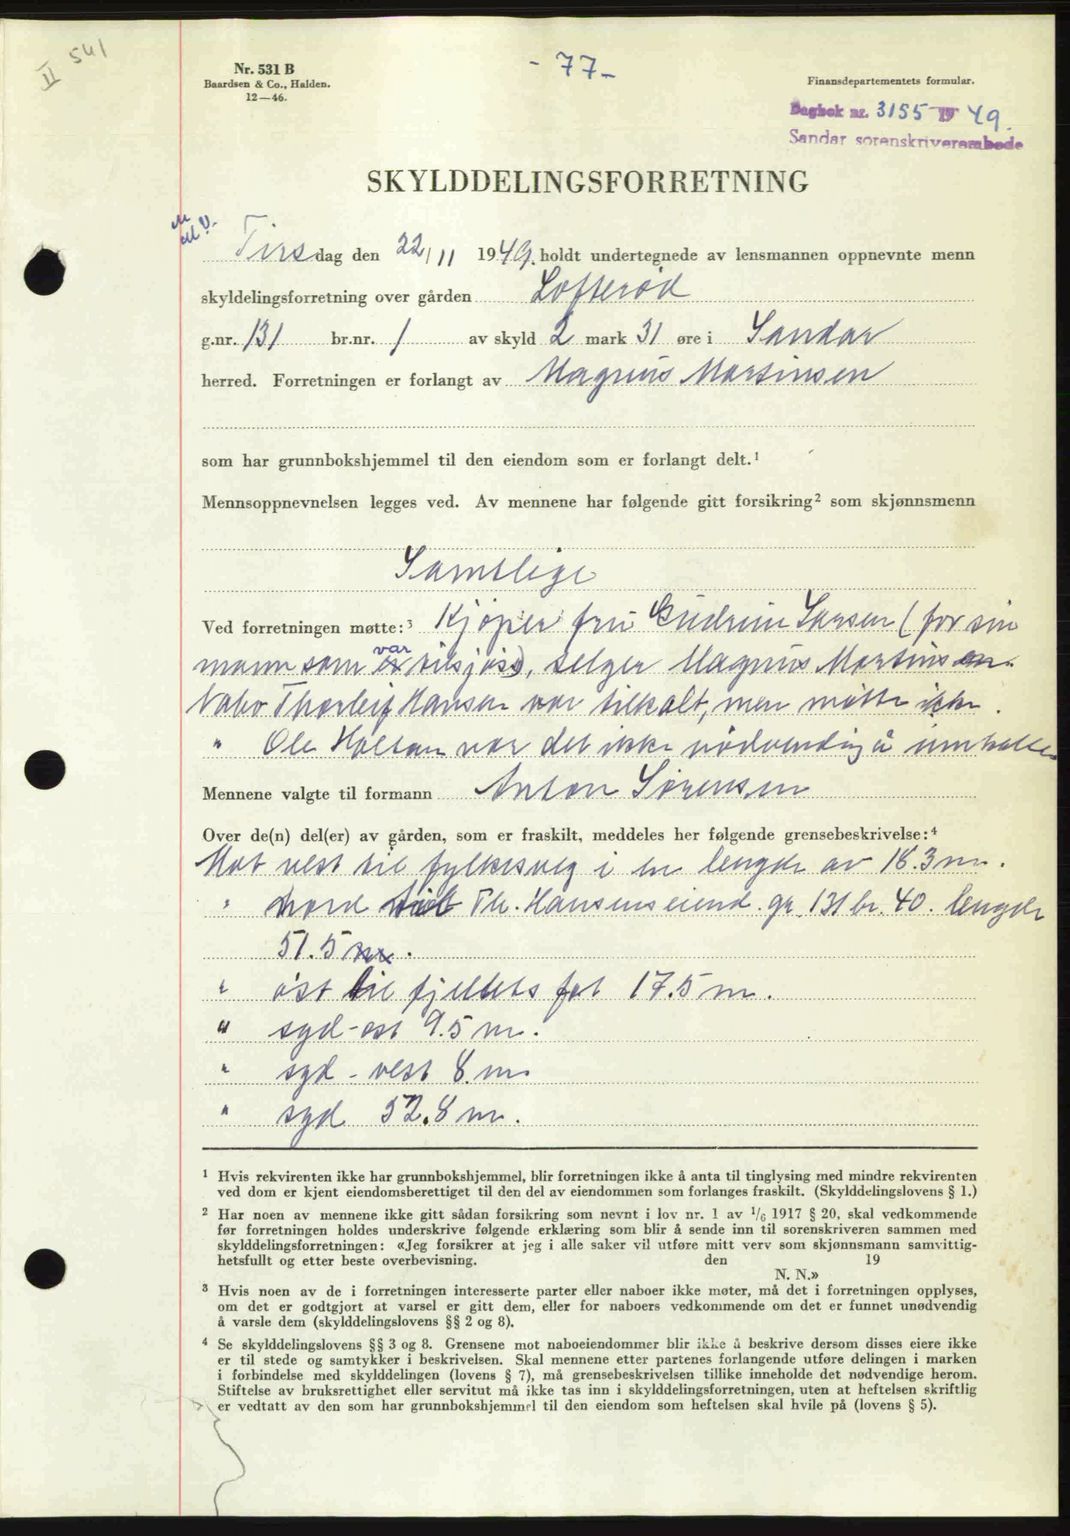 II 541
Nr. 531 B
Baardsen & Co., Halden.
12—46.
- 77 -
Finansdepartementets formular.
Dagbok nr. 3155 19 49.
Sandar sorenskriverembede
SKYLDDELINGSFORRETNING
Tirsdag den 22/11 1949. holdt undertegnede av lensmannen oppnevnte menn
skyldelingsforretning over gården Lofterød
g.nr. 131 br.nr. 1 av skyld 2 mark 31 øre i Sandar
herred. Forretningen er forlangt av Magnus Martinsen
som har grunnbokshjemmel til den eiendom som er forlangt delt.¹
Mennsoppnevnelsen legges ved. Av mennene har følgende gitt forsikring² som skjønnsmenn
Samtlige
Ved forretningen møtte:³ Kjøper fru Gudrun Larsen (for sin
mann som var tilsjøs), selger Magnus Martinsen.
Nabo Thorleif Hansen var tilkalt, men møtte ikke.
" Ole Holtan var det ikke nødvendig å innkalle
Mennene valgte til formann Anton Sørensen
Over de(n) del(er) av gården, som er fraskilt, meddeles her følgende grensebeskrivelse:⁴
Mot vest til fylkesveg i en lengde av 18.3 m.
" nord til Th. Hansens eiend. gr 131 br. 40. lengde
51.5 m.
" øst til fjellets fot 17.5 m.
" syd-øst 9.5 m.
" syd-vest 8 m
" syd 52.8 m.
¹ Hvis rekvirenten ikke har grunnbokshjemmel, blir forretningen ikke å anta til tinglysing med mindre rekvirenten
ved dom er kjent eiendomsberettiget til den del av eiendommen som forlanges fraskilt. (Skylddelingslovens § 1.)
² Har noen av mennene ikke gitt sådan forsikring som nevnt i lov nr. 1 av ¹/₆ 1917 § 20, skal vedkommende
før forretningen holdes underskrive følgende erklæring som blir å sende inn til sorenskriveren sammen med
skylddelingsforretningen: «Jeg forsikrer at jeg i alle saker vil utføre mitt verv som skjønnsmann samvittig-
hetsfullt og etter beste overbevisning. den 19
N. N.»
³ Hvis noen av de i forretningen interesserte parter eller naboer ikke møter, må det i forretningen opplyses,
om det er godtgjort at varsel er gitt dem, eller for naboers vedkommende om det er funnet unødvendig
å varsle dem (skylddelingslovens §§ 2 og 8).
⁴ Se skylddelingslovens §§ 3 og 8. Grensene mot naboeiendommer blir ikke å beskrive dersom disses eiere ikke
er til stede og samtykker i beskrivelsen. Skal mennene etter partenes forlangende utføre delingen i marken
i forbindelse med skylddelingen (lovens § 7), må grensebeskrivelsen tillike inneholde det nødvendige herom.
Stiftelse av bruksrettighet eller servitut må ikke tas inn i skylddelingsforretningen, uten at heftelsen skriftlig
er vedtatt av den som har grunnbokshjemmel til den eiendom som heftelsen skal hvile på (lovens § 5).